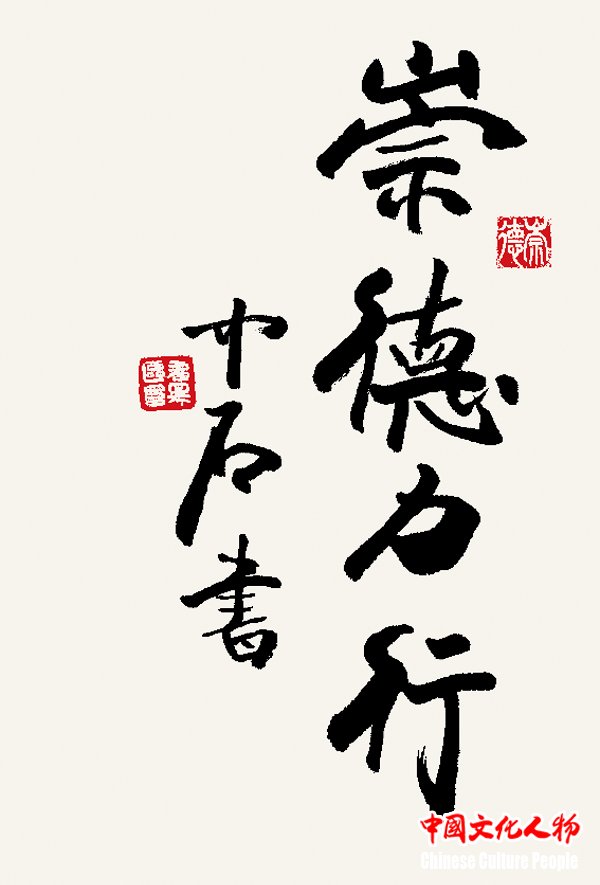 崇德力行
崇德
中石书
中國文化人物
Chinese Culture People